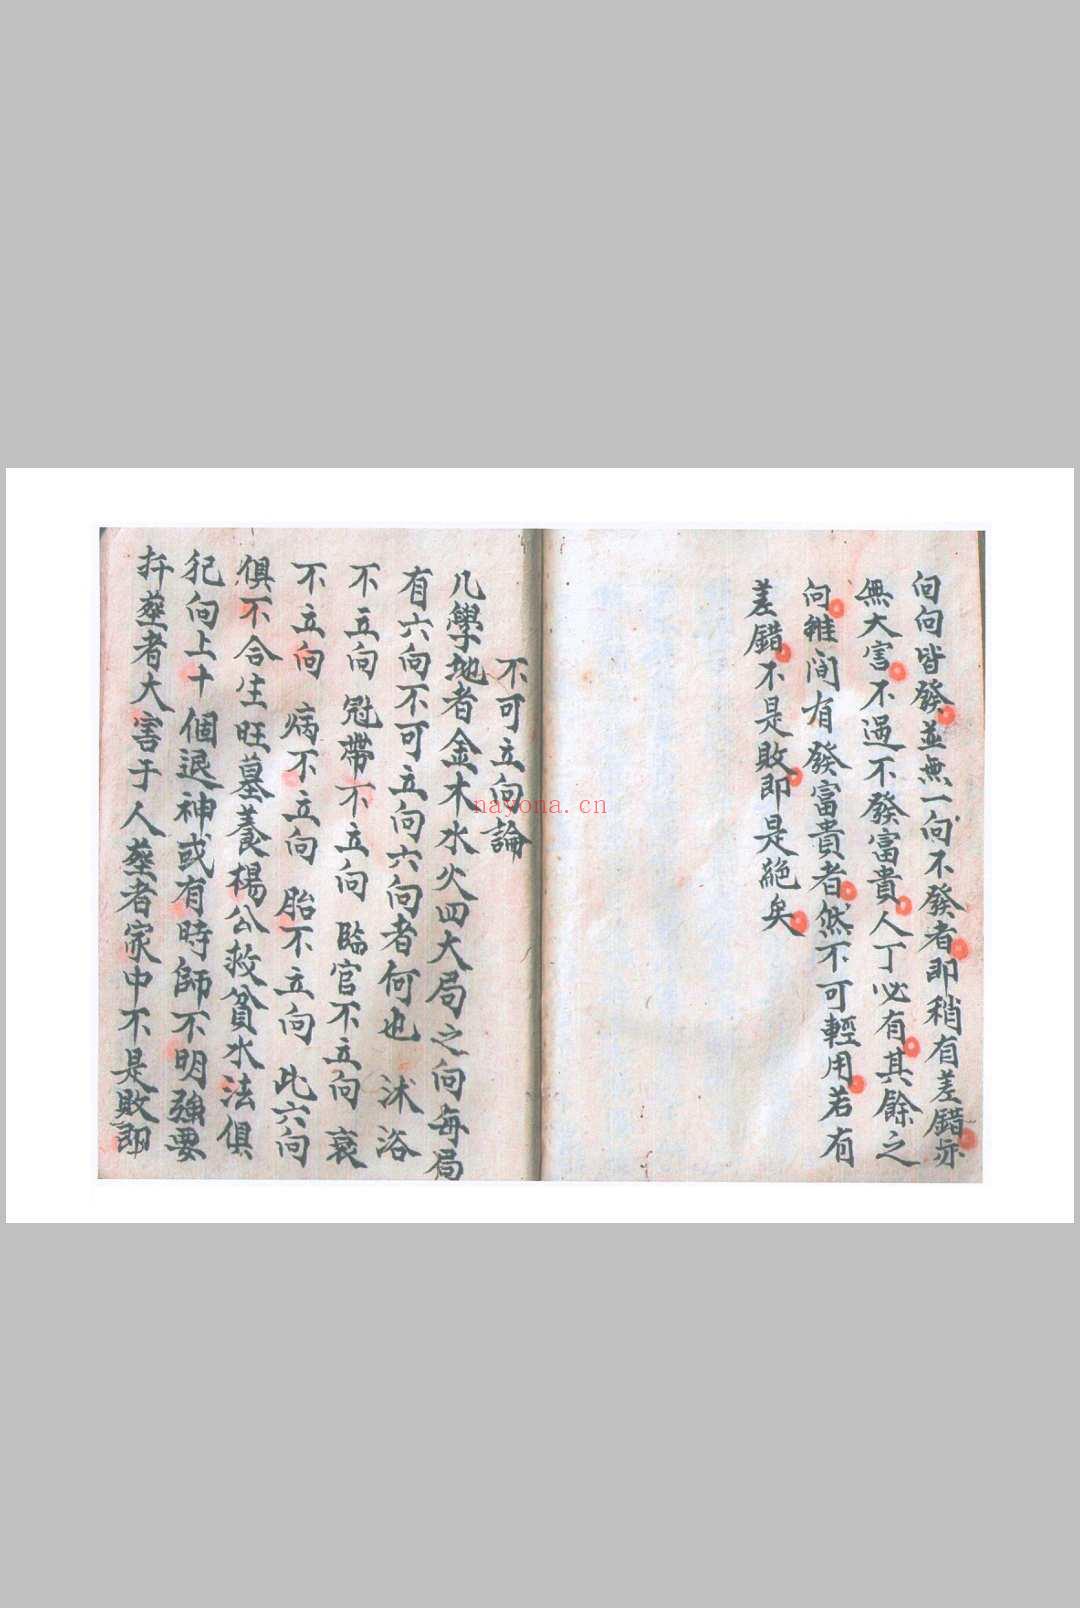 向向皆發並無一向不發者即稍有差錯亦
無大害不過不發富貴人丁必有其餘之
向雖間有發富貴者然不可輕用若有
差錯不是敗即是絕矣
不可立向論
凡學地者金木水火四大局之向每局
有六向不可立向六向者何也 沐浴
不立向 冠帶不立向 臨官不立向 衰
不立向 病不立向 胎不立向 此六向
俱不合生旺墓養楊公救貧水法俱
犯向上十個退神或有時師不明強要
扦葬者大害于人葬者家中不是敗即
nayona.cn